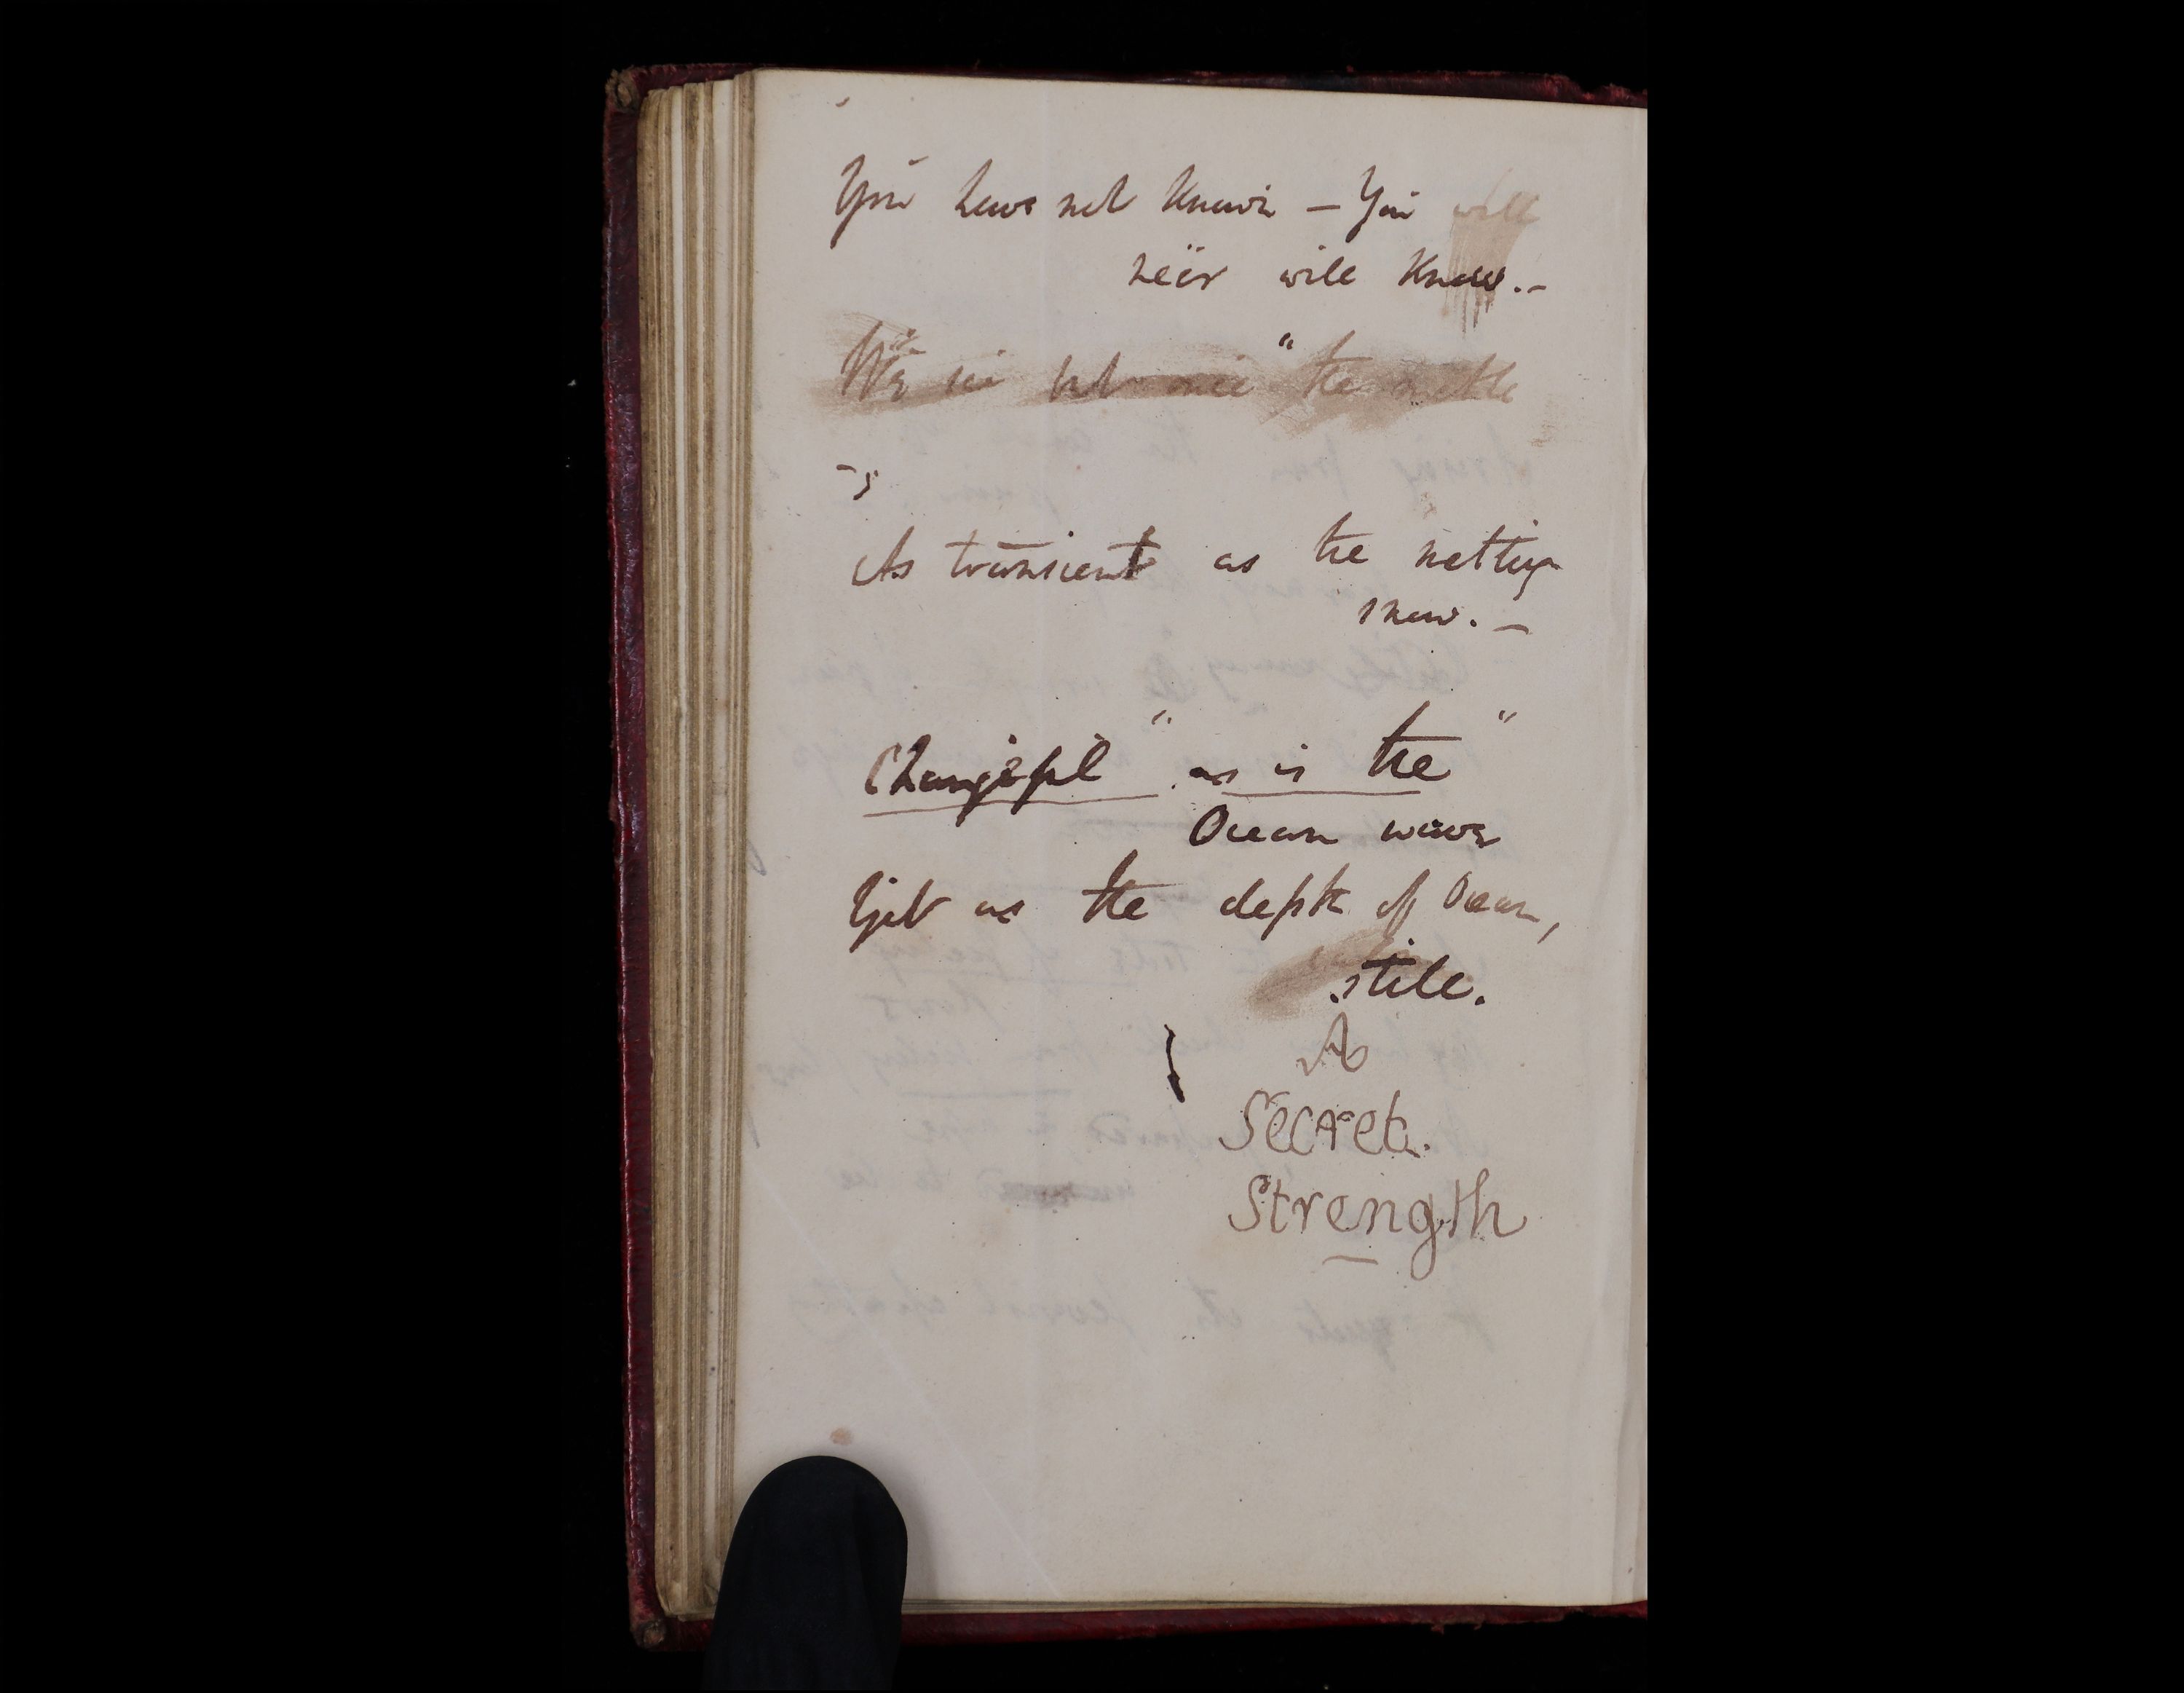 You have not known – You will
ne'er will know.–
We but once " the
As transient as the
snow. –
Changeful " as is the "
Ocean wave
Yet as the depth of Ocean,
still.
As
Secret.
Strength